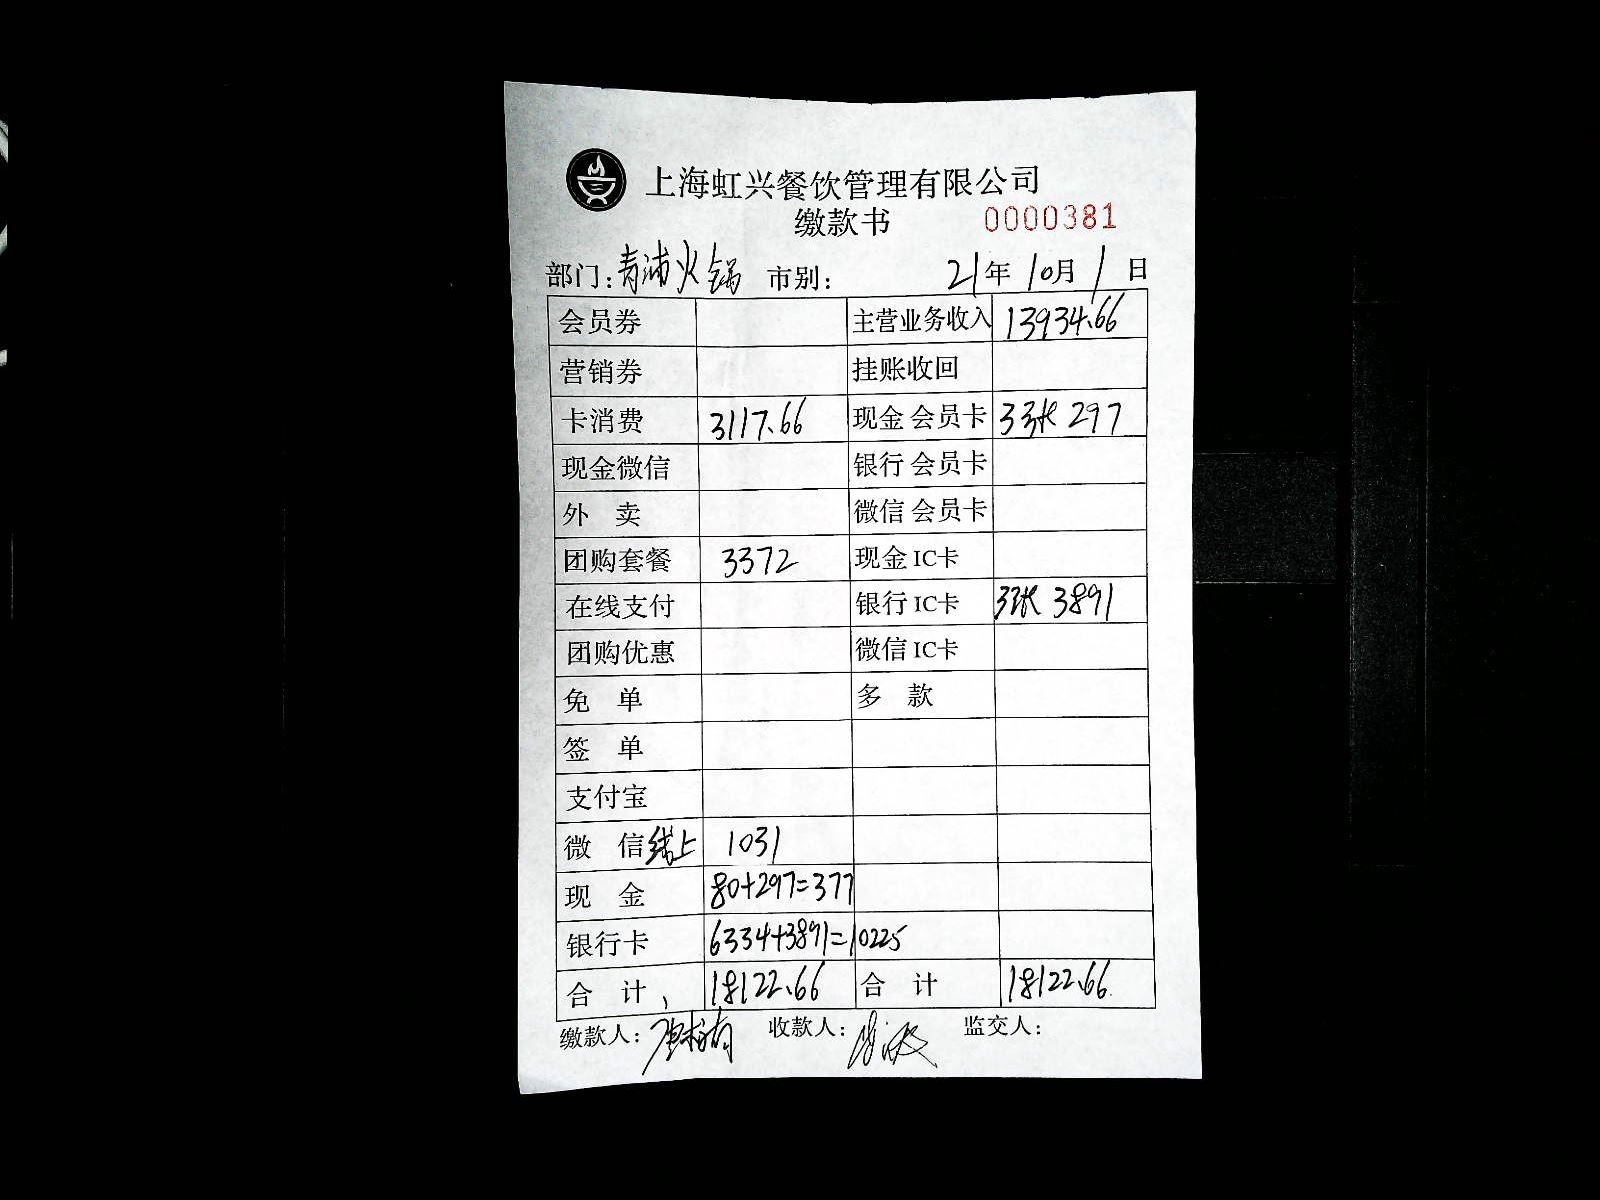 上海虹兴餐饮管理有限公司
缴款书 0000381
部门：青浦火锅 市别： 21年10月1日
会员券 主营业务收入 13934.66
营销券 挂账收回
卡消费 3117.66 现金会员卡 33张 297
现金微信 银行会员卡
外 卖 微信会员卡
团购套餐 3372 现金IC卡
在线支付 银行IC卡 3张 3891
团购优惠 微信IC卡
免 单 多 款
签 单
支付宝
微 信线上 1031
现 金 80+297=377
银行卡 6334+3891=10225
合 计、 18122.66 合 计 18122.66
缴款人： 收款人： 监交人：